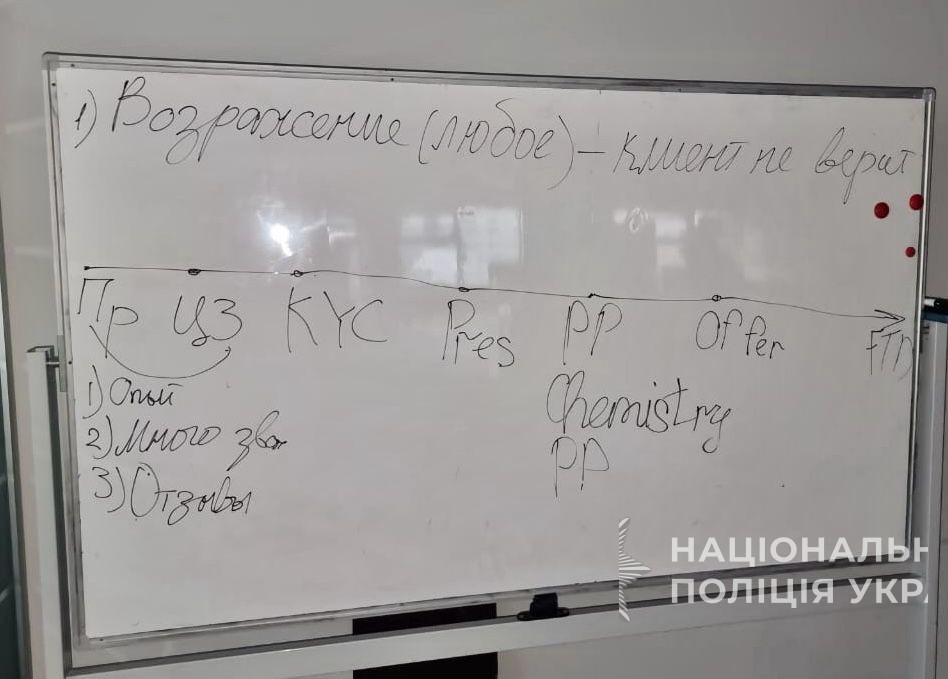 1) Возражение (любое) – клиент не верит
Пр ЦЗ KYC Pres PP Offer FTD
1) Опыт
2) Много зво
3) Отзывы
Chemistry
PP
НАЦІОНАЛЬН
ПОЛІЦІЯ УКРА